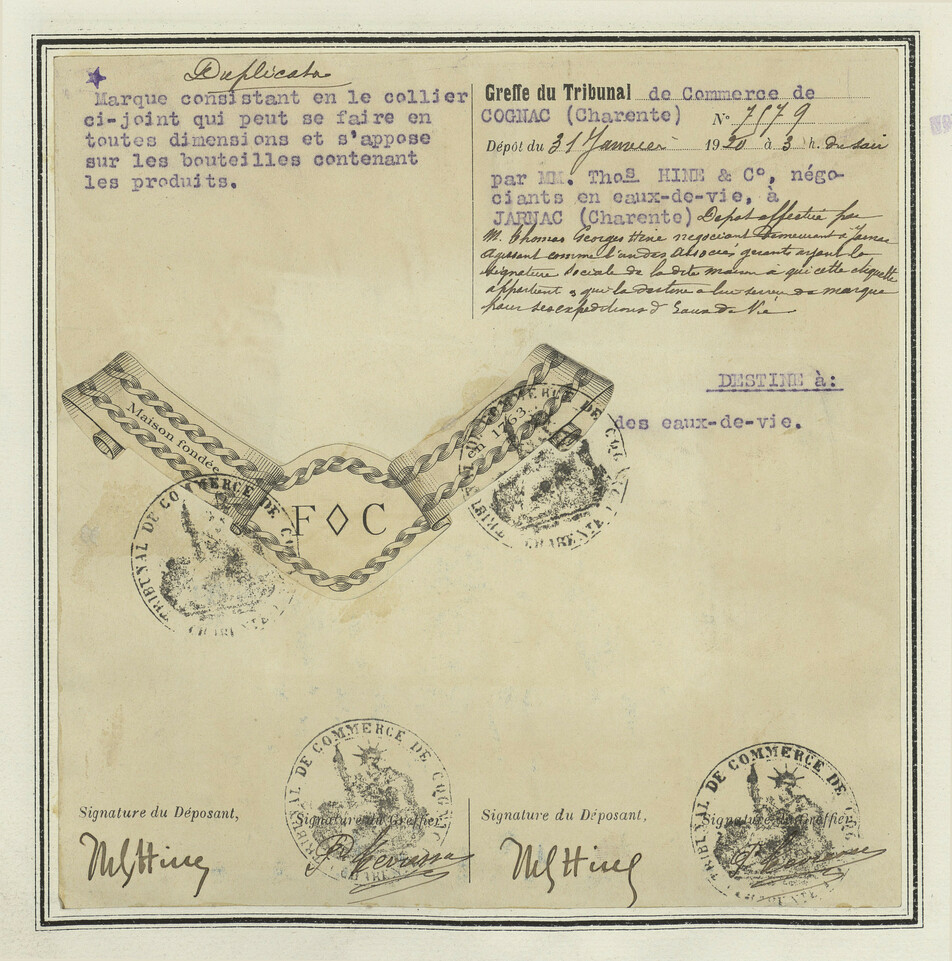 Duplicata
Marque consistant en le collier
ci-joint qui peut se faire en
toutes dimensions et s'appose
sur les bouteilles contenant
les produits.
Greffe du Tribunal de Commerce de
COGNAC (Charente) N° 7579
Dépôt du 31 Janvier 1920 à 3 h. du soir
par MM. Thos HINE & C°, négo-
ciants en eaux-de-vie, à
JARNAC (Charente) Dépot effectué par
M. Thomas Georges Hine negociant demeurant à Jarnac
agissant comme l'un des Associés gérants ayant la
signature Sociale de la dite maison à qui cette etiquette
appartient & qui la destine a lui servir de marque
pour ses expeditions d'Eaux de Vie
DESTINE à:
des eaux-de-vie.
Maison fondée
en 1763.
F◊C
TRIBUNAL DE COMMERCE DE COGNAC
CHARENTE
TRIBUNAL DE COMMERCE DE COGNAC
CHARENTE
TRIBUNAL DE COMMERCE DE COGNAC
CHARENTE
TRIBUNAL DE COMMERCE DE COGNAC
CHARENTE
Signature du Déposant,
Signature du Greffier
Signature du Déposant,
Signature du Greffier
Hine
Hine